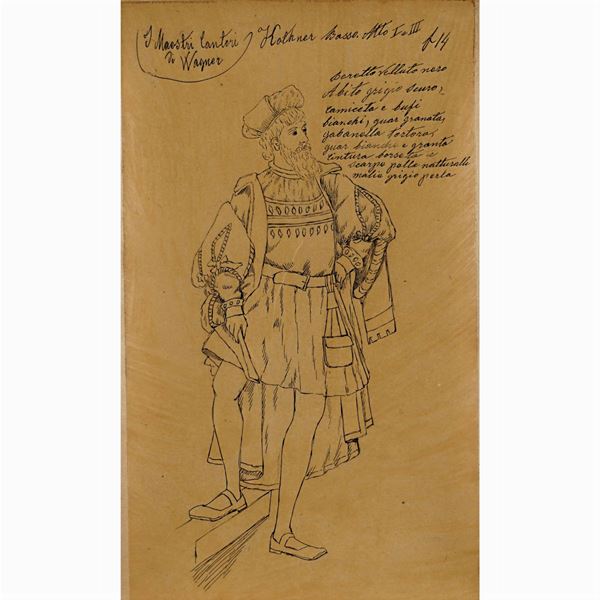 I Maestri Cantori
di
Wagner
Kothner Basso. Atto I e III
f. 14
Beretto velluto nero
Abito grigio scuro,
camiceta e bufi
bianchi, guar granata,
gabanella tortora,
guar bianche e granta
cintura borseta e
scarpe pelle natturalle
malie grigio perla